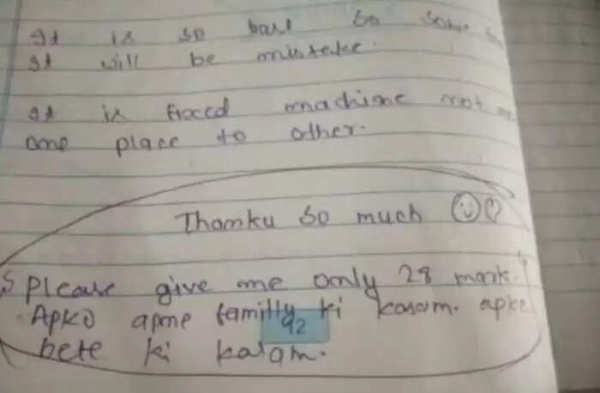 It is so bare so some
It will be misteke.
It is fixed machime not
ome place to other.
Thamku so much
Please give me omly 28 mark.
Apko apme familly ki kasam. apke
92
bete ki kasam.